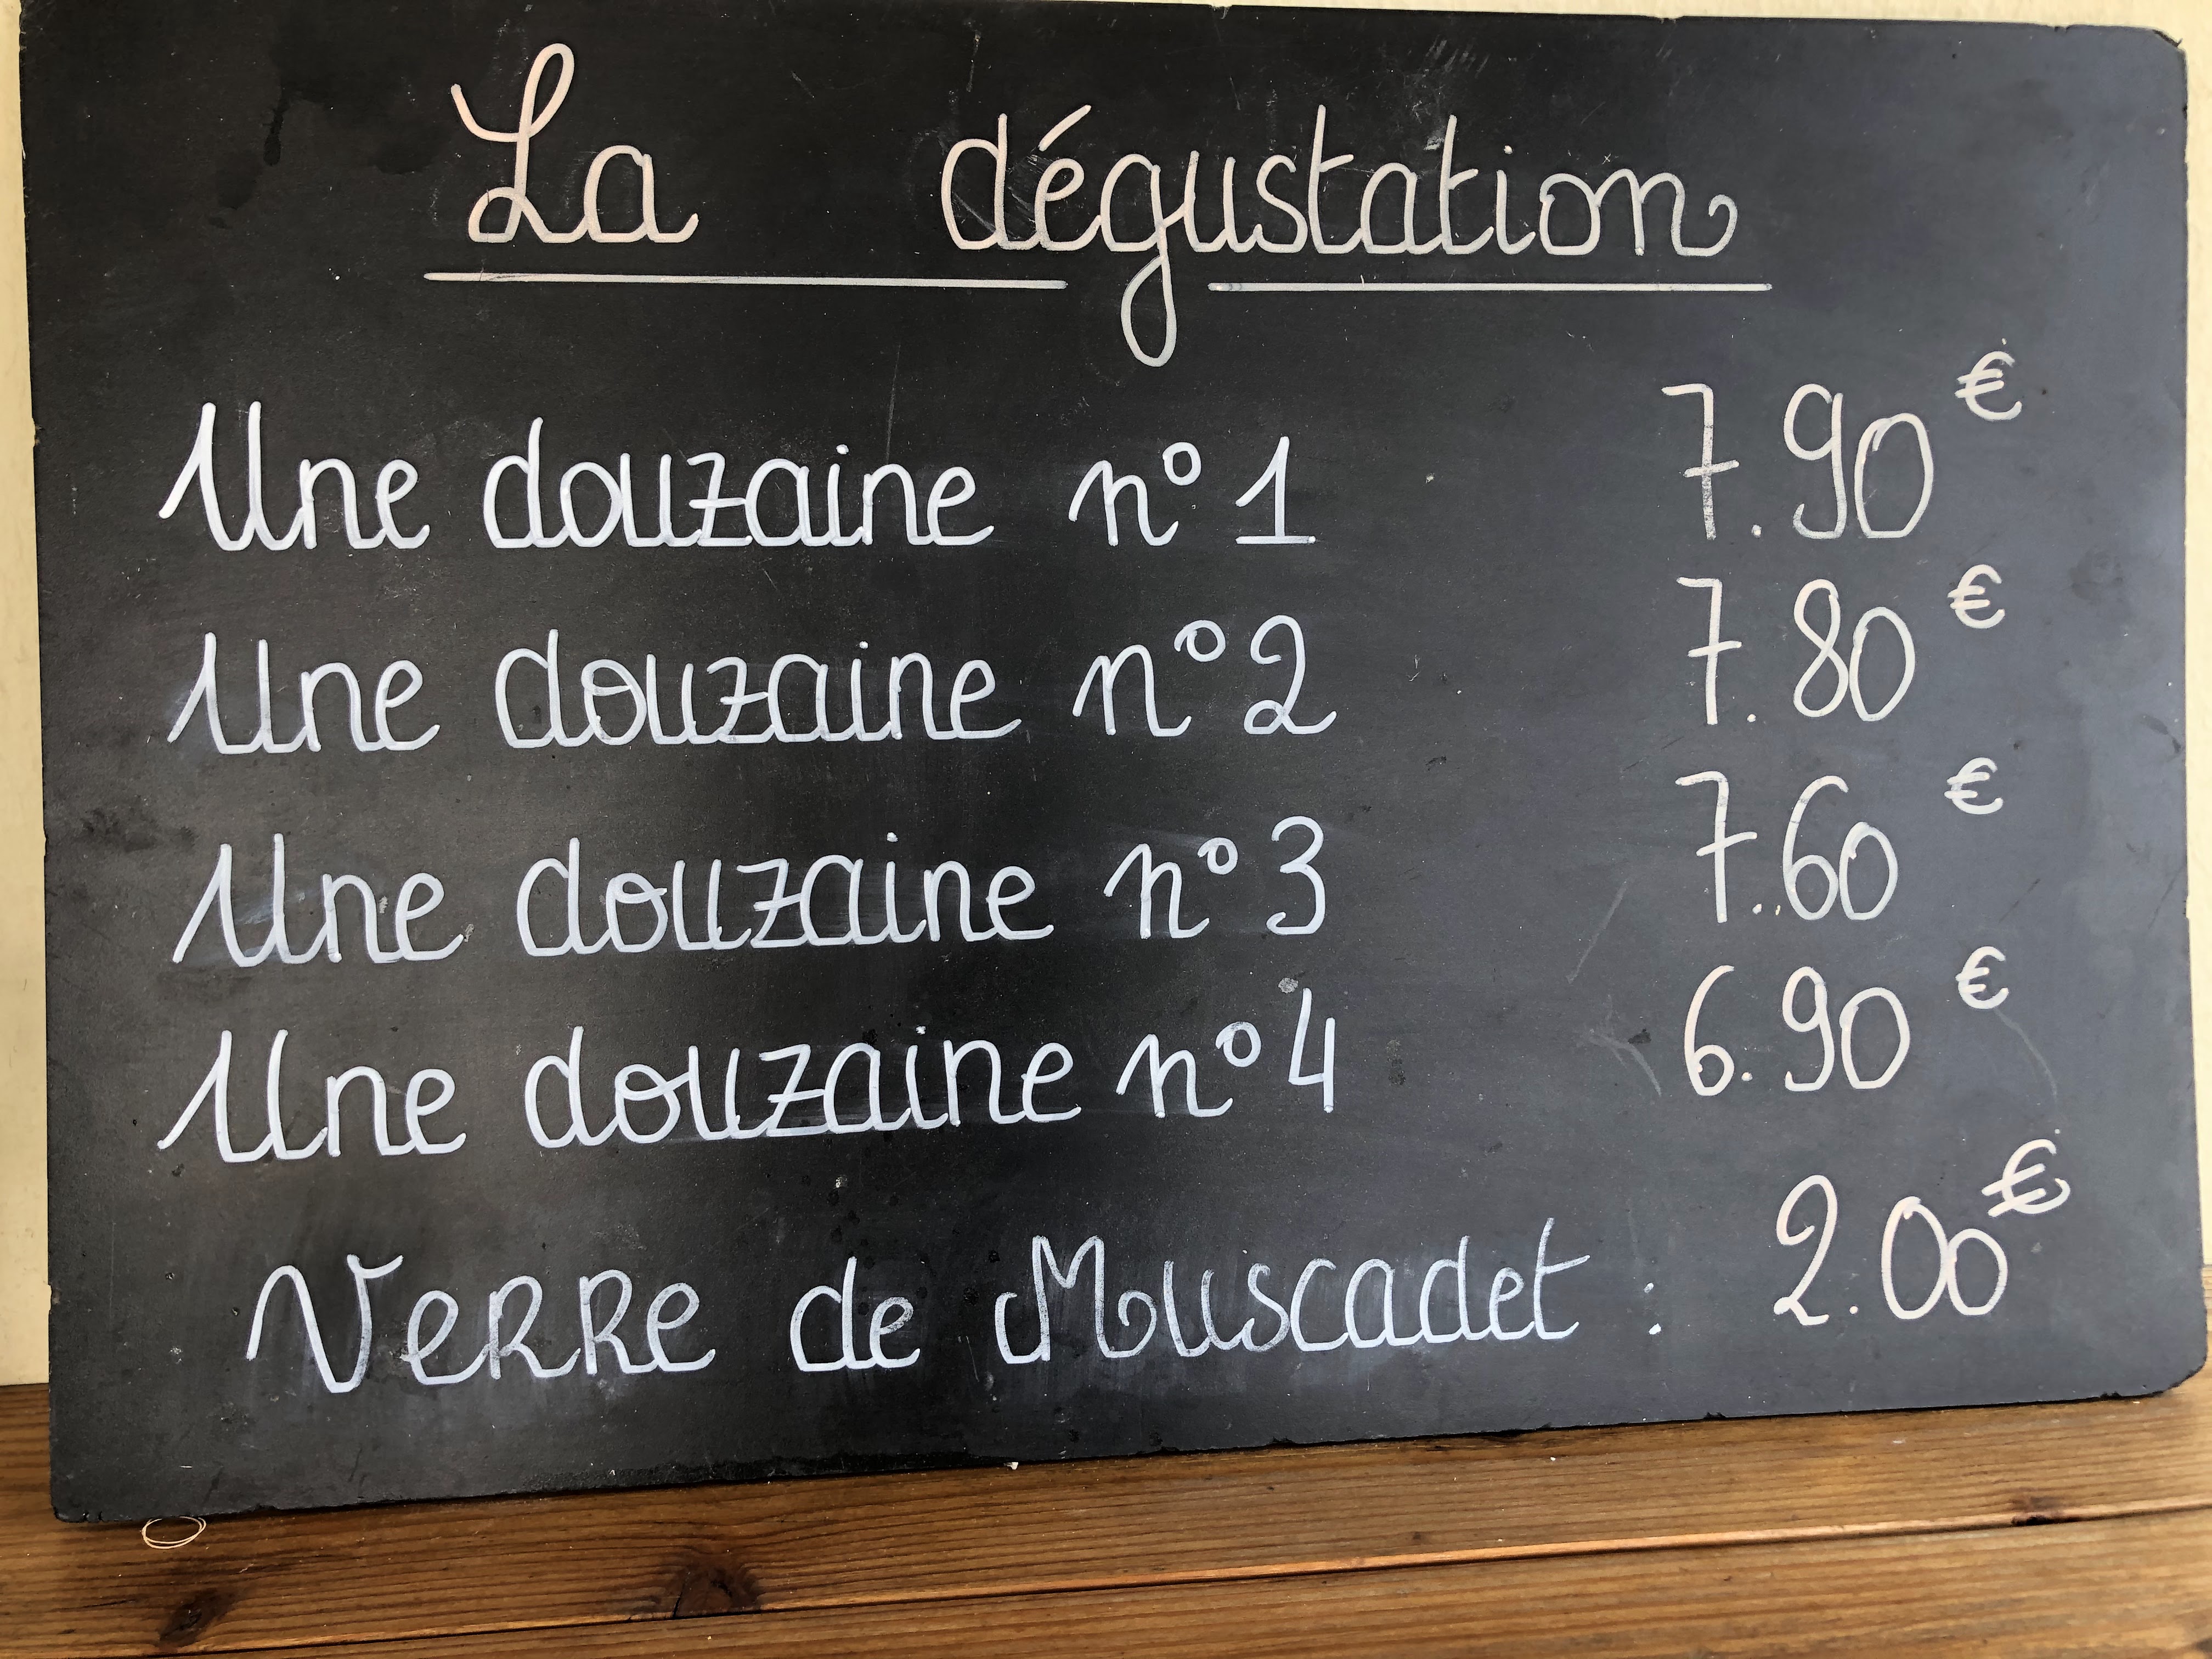 La dégustation
Une douzaine n° 1 7.90 €
Une douzaine n° 2 7.80 €
Une douzaine n° 3 7.60 €
Une douzaine n° 4 6.90 €
Verre de Muscadet : 2.00 €